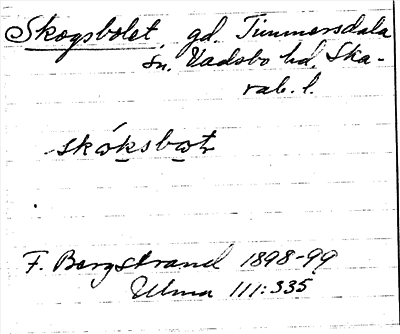 Skogsbolet, gd. Timmersdala
sn. Vadsbo hd. Ska-
rab. l.
skóksbot
F. Bergstrand 1898-99
Ulma 111:335